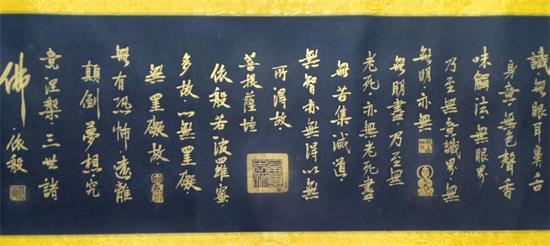 識無眼耳鼻舌
身意無色聲香
味觸法無眼界
乃至無意識界無
無明亦無
無明盡乃至無
老死亦無老死盡
無苦集滅道
無智亦無得以無
所得故
菩提薩埵
依般若波羅蜜
多故以無罣礙
無罣礙故
無有恐怖遠離
顛倒夢想究
竟涅槃三世諸
佛依般